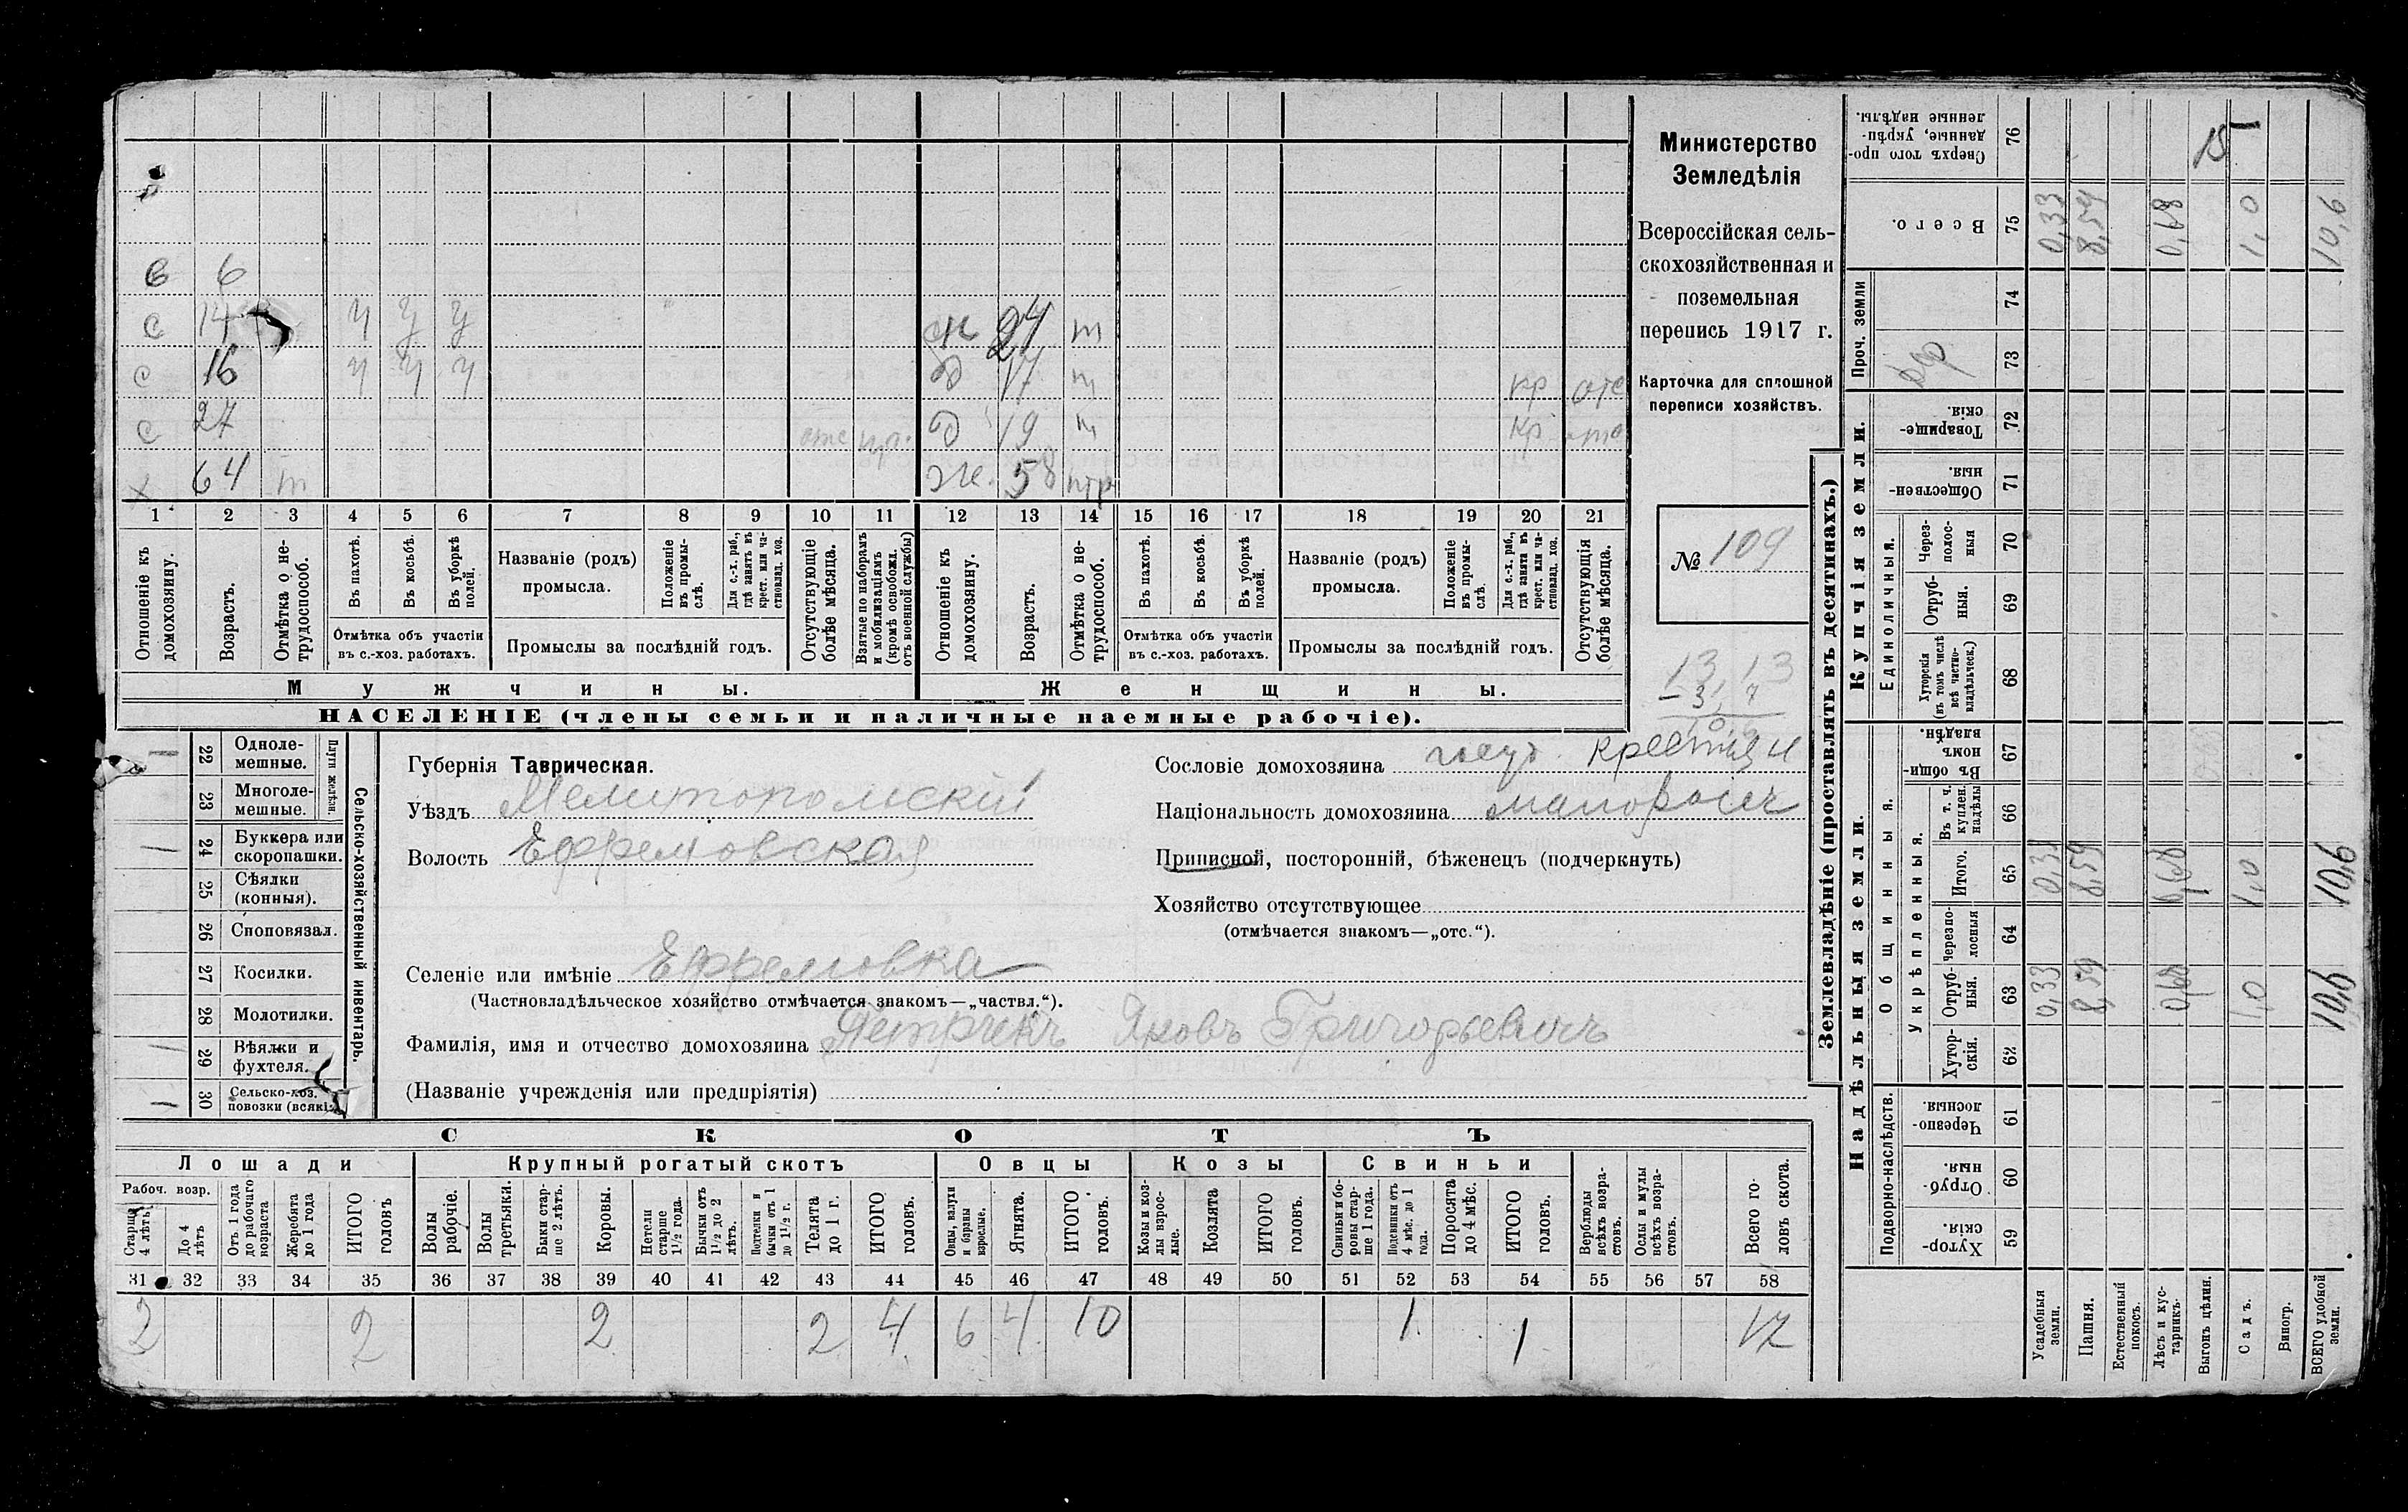 Министерство
Земледѣлія
Всероссійская сель-
скохозяйственная и
поземельная
перепись 1917 г.
Карточка для сплошной
переписи хозяйствъ.
№ 109
13,13
3, 7
в 6
с 14 ч у у
ж 24 т
с 16 ч ч ч
д 17 т кр отс
с 27 отс
д 19 т кр отс
х 64 т
ж. 58 нтр
1 2 3 4 5 6 7 8 9 10 11 12 13 14 15 16 17 18 19 20 21
Отношеніе къ домохозяину.
Возрастъ.
Отмѣтка о не-трудоспособ.
Въ пахотѣ.
Въ косьбѣ.
Въ уборкѣ полей.
Отмѣтка объ участіи
въ с.-хоз. работахъ.
Названіе (родъ)
промысла.
Положеніе въ промы-слѣ.
Для с.-х. раб., гдѣ занятъ въ крест. или ча-стновлад. хоз.
Промыслы за послѣдній годъ.
Отсутствующіе болѣе мѣсяца.
Взятые по наборамъ и мобилизаціямъ (кромѣ освобожд. отъ военной службы)
Отношеніе къ домохозяину.
Возрастъ.
Отмѣтка о не-трудоспособ.
Въ пахотѣ.
Въ косьбѣ.
Въ уборкѣ полей.
Отмѣтка объ участіи
въ с.-хоз. работахъ.
Названіе (родъ)
промысла.
Положеніе въ промы-слѣ.
Для с.-х. раб., гдѣ занята въ крест. или ча-стновлад. хоз.
Промыслы за послѣдній годъ.
Отсутствующія болѣе мѣсяца.
Мужчины.
Женщины.
НАСЕЛЕНІЕ (члены семьи и наличные наемные рабочіе).
Сельско-хозяйственный инвентарь.
Плуги желѣзн.
22 Одноле-мешные.
23 Многоле-мешные.
24 Буккера или скоропашки.
25 Сѣялки (конныя).
26 Сноповязал.
27 Косилки.
28 Молотилки.
29 Вѣялки и фухтеля.
30 Сельско-хоз. повозки
Губернія Таврическая.
Уѣздъ Мелитопольскій
Волость Ефремовская
Селеніе или имѣніе Ефремовка
(Частновладѣльческое хозяйство отмѣчается знакомъ—„частвл.“).
Фамилія, имя и отчество домохозяина Яковъ Григорьевичъ
(Названіе учрежденія или предпріятія)
Сословіе домохозяина крестьян
Національность домохозяина малоросъ
Приписной, посторонній, бѣженецъ (подчеркнуть)
Хозяйство отсутствующее
(отмѣчается знакомъ—„отс.“).
СКОТЪ
Лошади Крупный рогатый скотъ Овцы Козы Свиньи
Рабоч. возр.
Старше 4 лѣтъ
До 4 лѣтъ
Отъ 1 года до рабочаго возраста
Жеребята до 1 года
ИТОГО головъ
Волы рабочіе.
Волы третьяки.
Быки стар-ше 2 лѣтъ.
Коровы.
Нетели старше 1½ года.
Бычки отъ 1½ до 2 лѣтъ.
Подтелки и бычки отъ 1 до 1½ г.
Телята до 1 г.
ИТОГО головъ.
Овцы, валухи и бараны взрослые.
Ягнята.
ИТОГО головъ.
Козы и коз-лы взрос-лые.
Козлята
ИТОГО головъ.
Свиньи и бо-ровы стар-ше 1 года.
Подсвинки отъ 4 мѣс. до 1 года.
Поросята до 4 мѣс.
ИТОГО головъ.
Верблюды всѣхъ возра-стовъ.
Ослы и мулы всѣхъ возра-стовъ.
Всего го-ловъ скота.
31 32 33 34 35 36 37 38 39 40 41 42 43 44 45 46 47 48 49 50 51 52 53 54 55 56 57 58
2 2 2 2 4 6 4 10 1 1 17
Землевладѣніе (проставлять въ десятинахъ.)
Надѣльныя земли. Купчія земли.
Подворно-наслѣдств.
Общинныя.
Укрѣпленныя.
Единоличныя.
Проч. земли
59 Хутор-скія.
60 Отруб-ныя.
61 Черезпо-лосныя.
62 Хутор-скія.
63 Отруб-ныя.
64 Черезпо-лосныя
65 Итого.
66 Въ т. ч. куплен. надѣлы
67 Въ общи-номъ владѣн.
68 Хуторскія (въ томъ числѣ всѣ частно-владѣльческ.)
69 Отруб-ныя.
70 Через-полос-ныя
71 Обществен-ныя.
72 Товарище-скія.
73
74
75 Всего.
76 Сверхъ того про-данные, укрѣп-ленные надѣлы.
Усадебныя земли. 0,33 0,33 0,33
Пашня. 8,59 8,59 8,59
Естественный покосъ.
Лѣсъ и кус-тарникъ. 0,68 0,68 0,68
Выгонъ цѣлин. 15
Садъ. 1,0 1,0 1,0
Виногр.
ВСЕГО удобной земли. 10,6 10,6 10,6